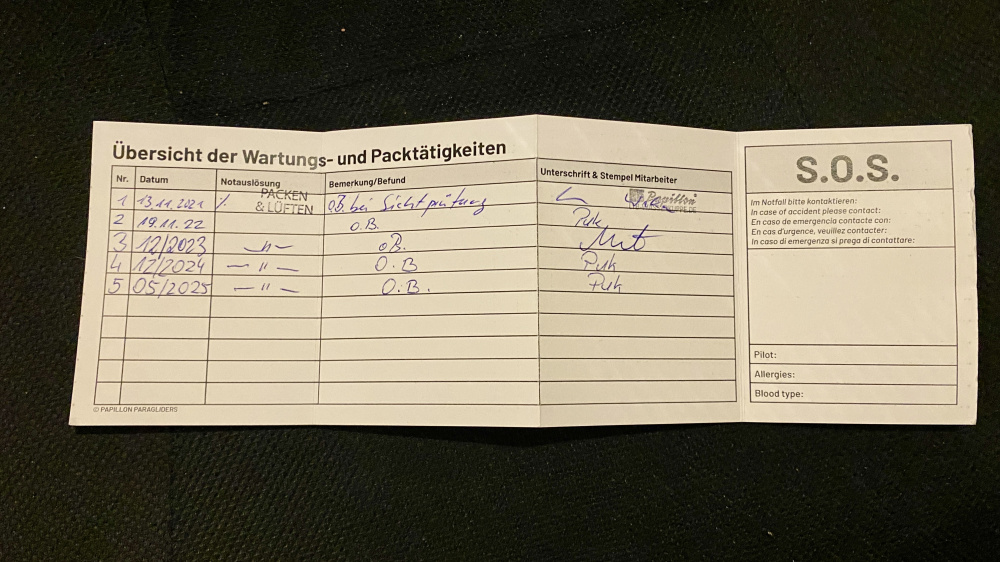 Übersicht der Wartungs- und Packtätigkeiten
Nr. Datum Notauslösung Bemerkung/Befund Unterschrift & Stempel Mitarbeiter
1 13.11.2021 ٪ PACKEN & LÜFTEN o.B. bei Sichtprüfung Papillon
2 19.11.22 o.B. Puk
3 12/2023 —"— o.B.
4 12/2024 —"— O.B Puk
5 05/2025 —"— O.B. Puk
© PAPILLON PARAGLIDERS
S.O.S.
Im Notfall bitte kontaktieren:
In case of accident please contact:
En caso de emergencia contacte con:
En cas d'urgence, veuillez contacter:
In caso di emergenza si prega di contattare:
Pilot:
Allergies:
Blood type: